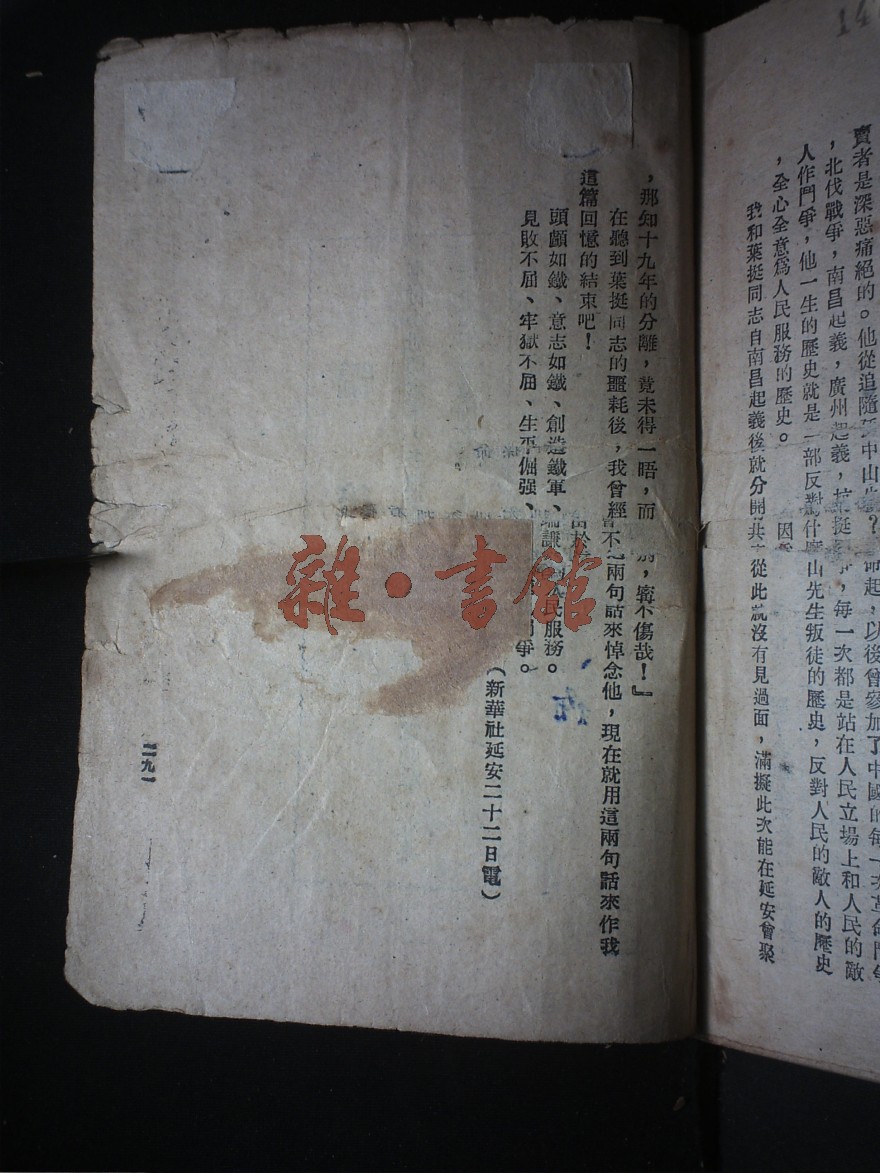 賣者是深惡痛絕的。他從追隨 中山 起，以後曾參加了中國的每一次革命鬥爭
，北伐戰爭，南昌起義，廣州起義，抗 ，每一次都是站在人民立場上和人民的敵
人作鬥爭，他一生的歷史就是一部反對 山先生叛徒的歷史，反對人民的敵人的歷史
，全心全意爲人民服務的歷史。
我和葉挺同志自南昌起義後就分開 從此就沒有見過面，滿擬此次能在延安會聚
，那知十九年的分離，竟未得一晤，而 別，寧不傷哉！』
在聽到葉挺同志的噩耗後，我曾經 兩句話來悼念他，現在就用這兩句話來作我
這篇回憶的結束吧！
頭顱如鐵、意志如鐵、創造鐵軍、 人民服務。
見敗不屈、牢獄不屈、生平倔强、 爭。
（新華社延安二十二日電）
二九一
雜·書館